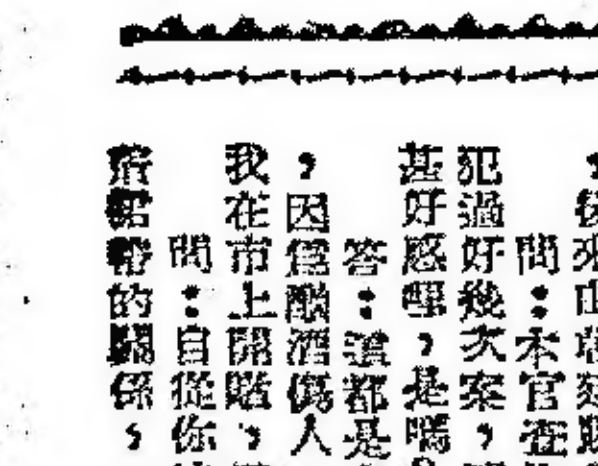 ，後來由
問：本官查
犯過好幾次案，
甚好感哩，是嗎
答：這都是
，因爲酗酒傷人
我在市上開賭，
問：自從你
的關係，